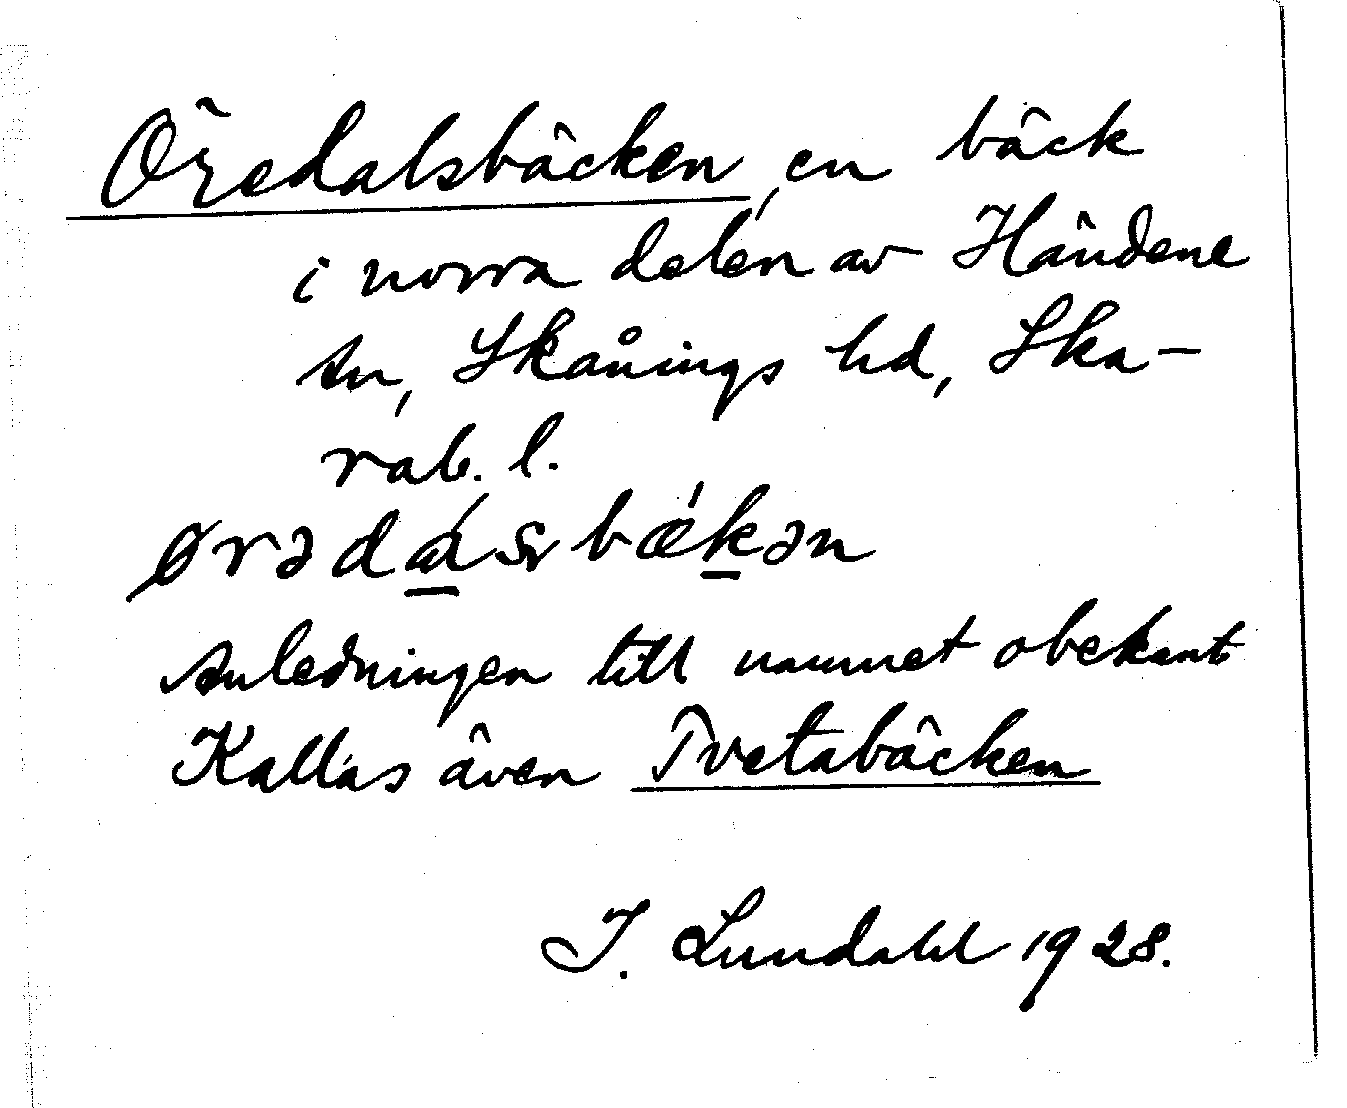 Öredalsbäcken, en bäck
i norra delen av Händene
sn, Skånings hd, Ska-
rab. l.
ørədásbǽkən
Anledningen till namnet obekant
Kallas även Tvetabäcken
I. Lundahl 1928.